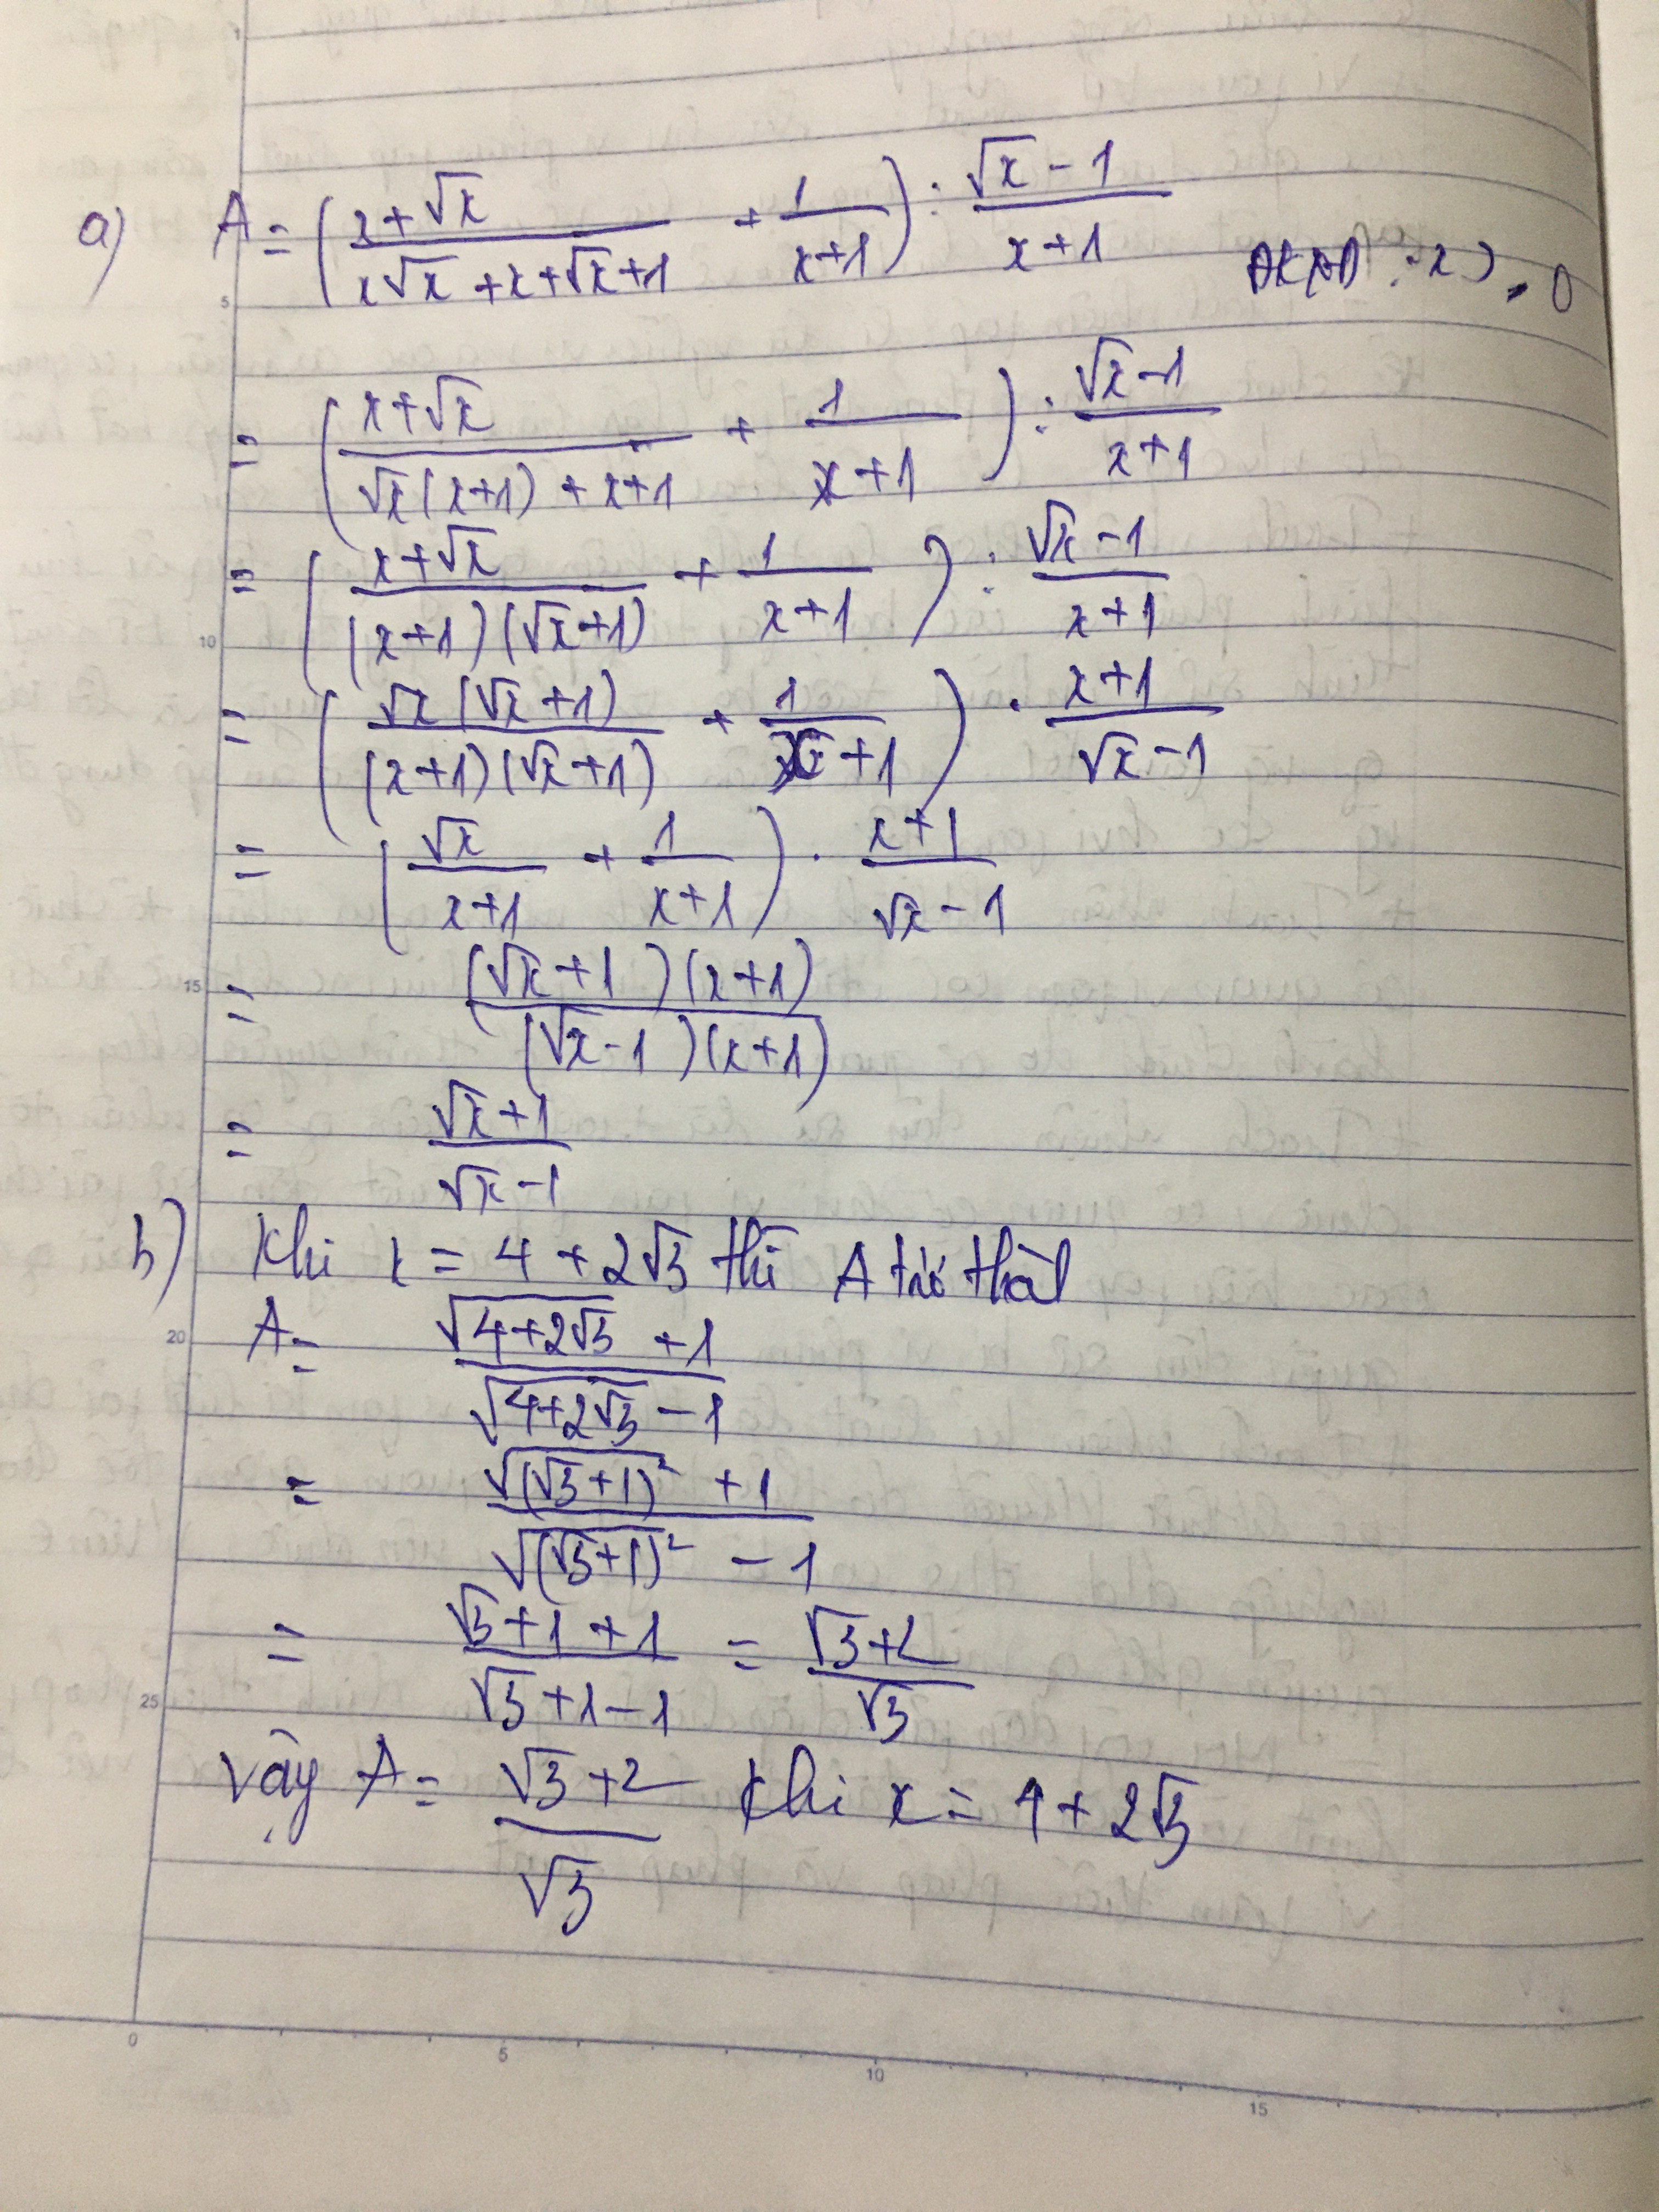 a) A = (x+√x / x√x + x + √x + 1 + 1 / x+1) : √x - 1 / x+1
ĐKXĐ : x > 0
= (x+√x / √x(x+1) + x+1 + 1 / x+1) : √x-1 / x+1
= (x+√x / (x+1)(√x+1) + 1 / x+1) : √x-1 / x+1
= (√x(√x+1) / (x+1)(√x+1) + 1 / x+1) . x+1 / √x-1
= (√x / x+1 + 1 / x+1) . x+1 / √x-1
= (√x+1)(x+1) / (√x-1)(x+1)
= √x+1 / √x-1
b) Khi x = 4 + 2√3 thì A trở
A = √4+2√3 + 1 / √4+2√3 - 1
= √(√3+1)² + 1 / √(√3+1)² - 1
= √3+1+1 / √3+1-1 = √3+2 / √3
Vậy A = √3+2 / √3 khi x = 4 + 2√3
1
5
10
15
20
25
0 5 10 15